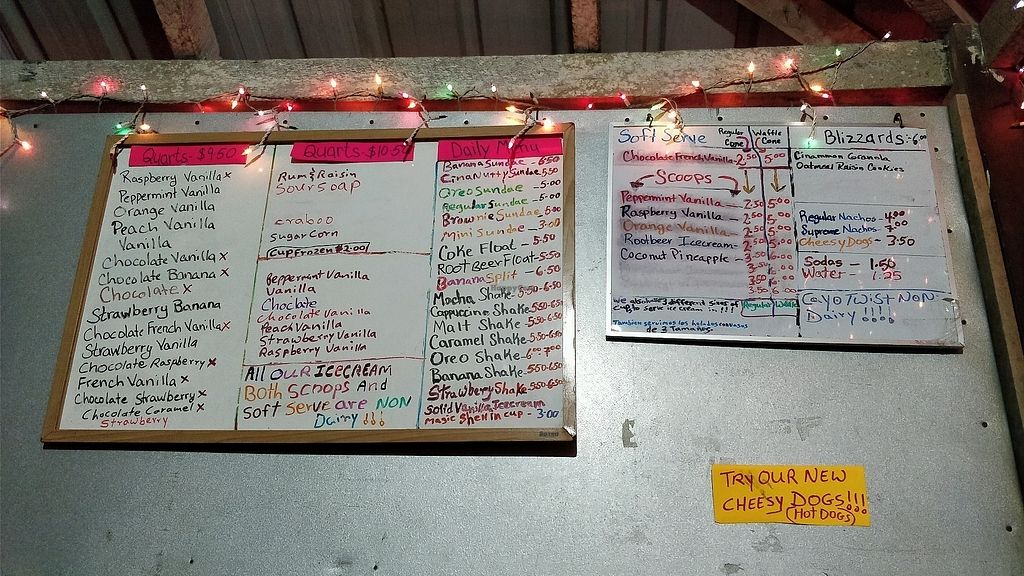 Quarts-$9.50
Raspberry Vanilla x
Peppermint Vanilla
Orange Vanilla
Peach Vanilla
Vanilla
Chocolate Vanilla x
Chocolate Banana x
Chocolate x
Strawberry Banana
Chocolate French Vanilla x
Strawberry Vanilla
Chocolate Raspberry x
French Vanilla x
Chocolate Strawberry x
Chocolate Caramel x
Strawberry
Quarts-$10.50
Rum & Raisin
Soursoap
craboo
sugar corn
Cup Frozen $2.00
Peppermint Vanilla
Vanilla
Choclate
Chocolate Vanilla
Peach Vanilla
Strawberry Vanilla
Raspberry Vanilla
All OUR ICECREAM
Both SCOOPS And
Soft Serve are NON
Dairy !!!
Daily Menu
Banana Sundae - 6.50
CinaNutty Sundae 5.50
Oreo Sundae - 5.00
Regular Sundae - 5.00
Brownie Sundae - 5.00
Mini Sundae - 3.00
Coke Float - 5.50
Root Beer Float - 5.50
Banana Split - 6.50
Mocha Shake - 5.50-6.50
Cappuccino Shake - 5.50-6.50
Malt Shake - 5.50-6.50
Caramel Shake - 5.50-6.50
Oreo Shake - 6.00-7.00
Banana Shake - 5.50-6.50
Strawberry Shake - 5.50-6.50
Solid Vanilla Icecream
Magic Shell in cup - 3.00
Soft Serve Regular Cone Waffle Cone
Chocolate French Vanilla - 2.50 5.00
SCOOPS
Peppermint Vanilla - 2.50 5.00
Raspberry Vanilla - 2.50 5.00
Orange Vanilla - 2.50 5.00
Rootbeer Icecream - 2.50 5.00
Coconut Pineapple - 3.50 6.00
3.50 6.00
3.50 6.00
3.50 6.00
we also have 3 different sizes of
cups to serve ice cream in !!!!
Regular Waffle
Tambien servimos los helados en vasos
de 3 Tamaños
Blizzards - 6.00
Cinammon Granola
Oatmeal Raisin Cookies
Regular Nachos - 4.00
Supreme Nachos - 7.00
Cheesy Dogs - 3.50
Sodas - 1.50
Water - 1.25
Cayo Twist NON-
Dairy !!!!
TRY OUR NEW
CHEESY DOGS!!!
(HOT DOGS)